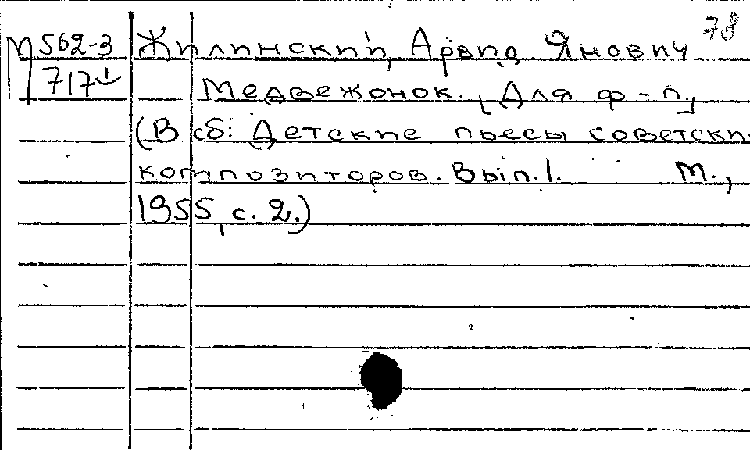 78
М 562-3 Жилинский, Арвид Янович
717 Медвежонок. [Для ф-п.]
(В сб: Детские пьесы советски
композиторов. Вып. 1. М.,
1955, с. 2.)